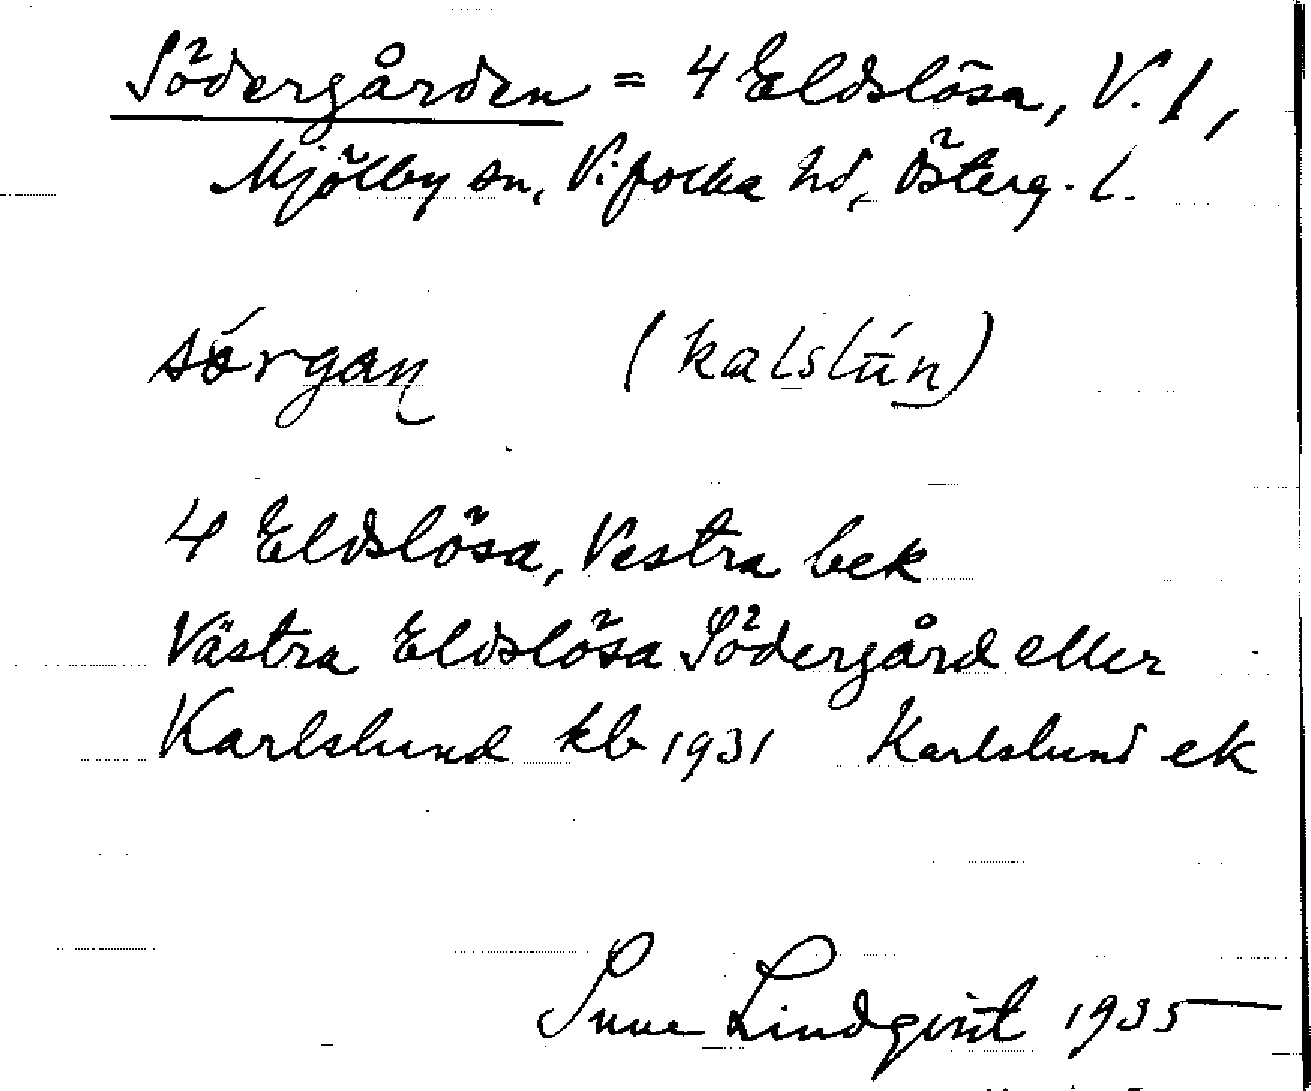 Södergården = 4 Eldslösa, V. /,
Mjölby sn, Vifolka hd, Österg. l.
sórgan (kalslún)
4 Eldslösa, Vestra bek
Västra Eldslösa Södergård eller
Karlslund kb 1931 Karlslund ek
Sune Lindqvist 1935